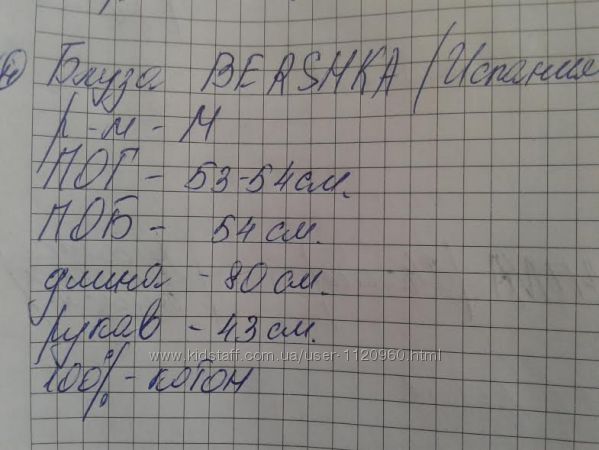 Блуза BERSHKA / Испания
р-м - М
ПОГ - 53-54 см.
ПОБ - 54 см.
длина - 80 см.
рукав - 43 см.
www.kidstaff.com.ua/user-1120960.html
100% - котон